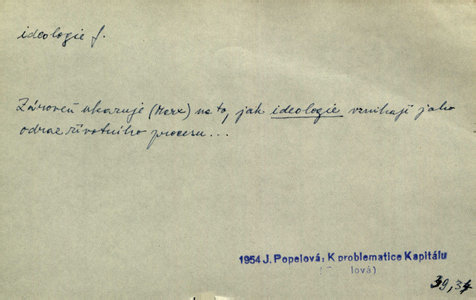 ideologie f.
Zároveň ukazuje (Marx) na to, jak ideologie vznikají jako
odraz životního procesu...
1954 J. Popelová: K problematice Kapitálu
lová)
39,34